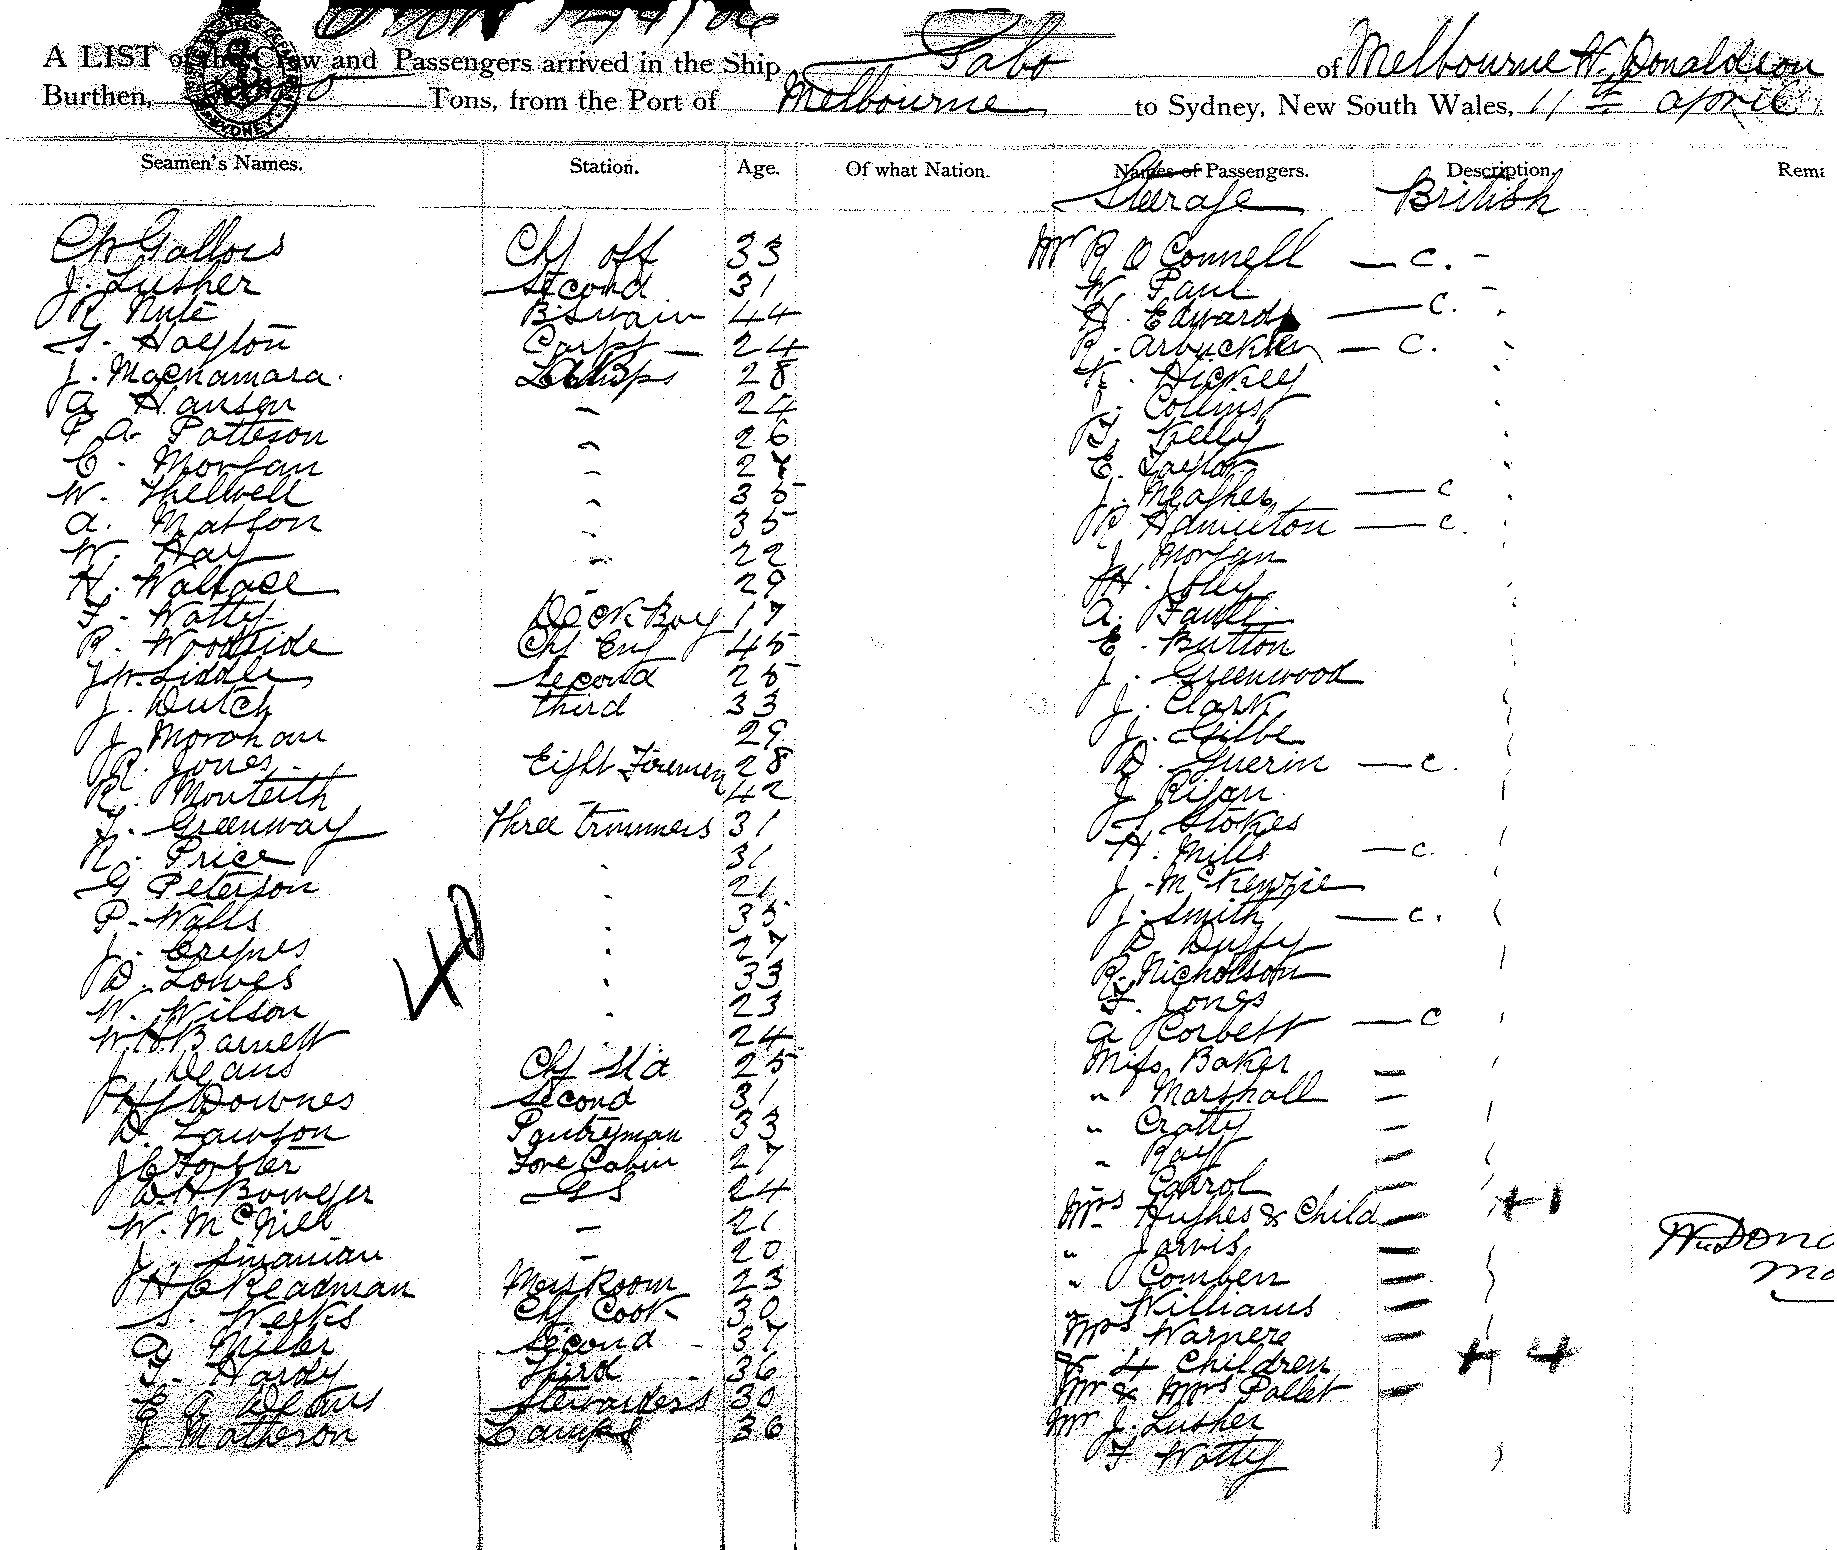 A LIST of the Crew and Passengers arrived in the Ship Gabo of Melbourne W. Donaldson
Burthen, Tons, from the Port of Melbourne to Sydney, New South Wales, 11th April
Seamen's Names. Station. Age. Of what Nation. Names of Passengers. Description.
Steerage British
Ch Gallois Chf off 33 Mr R O Connell — C. -
J. Lusher Second 31 W. Paul
R. Nute BSwain 44 H. Edwards — C.
Hayton Carptr — 24 R. Arbuckle — C.
J. Macnamara. Lamps 28 Hickey
A Hansen 24 J. Collins
P A. Patteson 26 Kelly
C. Morgan 2 E. Taylor
W. Thelwell 35 J. Meagher — C
A. Matson 35 R Hamilton — C.
W. Hay 22 J. Morgan
H. Wallace 29 H. Jolly
F. Watty Deck Boy 17 A.
R. Woodside Chf Eng 45 E. Button
J W. Liddle Second 25 J. Greenwood
J. Dutch third 33 J. Clark
J Morahan 29 J. Gilbe
R. Jones Eight Firemen 28 D. Guerin — C.
R. Monteith 42 J Rigan
Greenway three trimmers 31 Stokes
N. Price 31 H. Mills — C.
G Peterson 21 J. McKenzie
P. Walls 35 J. Smith — C.
J. 27 D. Duffy
D. Lowes 33 R. Nicholson
40
W. Wilson 23 F. Jones
W Barnett 24 A Corbett — C
J. Deans Chf Std 25 Miss Baker —
Downes Second 31 " Marshall —
D. Lawson Pantryman 33 " Cratty —
J C Forster Fore Cabin 27 " Ray —
H Bowyer GS 24 " Carrol —
W. McNeil — 21 Mrs Hughes & Child — + 1
J. Swanian — 20 " Jarvis —
H C Readman Mess Room 23 " Comben —
S. Weeks Chf Cook 30 " Williams —
A Miller Second 37 Mrs Warner —
Hardy Third 36 & 4 Children — + 4
E A Deans Stewardess 30 Mr & Mrs Pallet —
J Matheson Lamps 36 Mr J. Lusher
F Watty